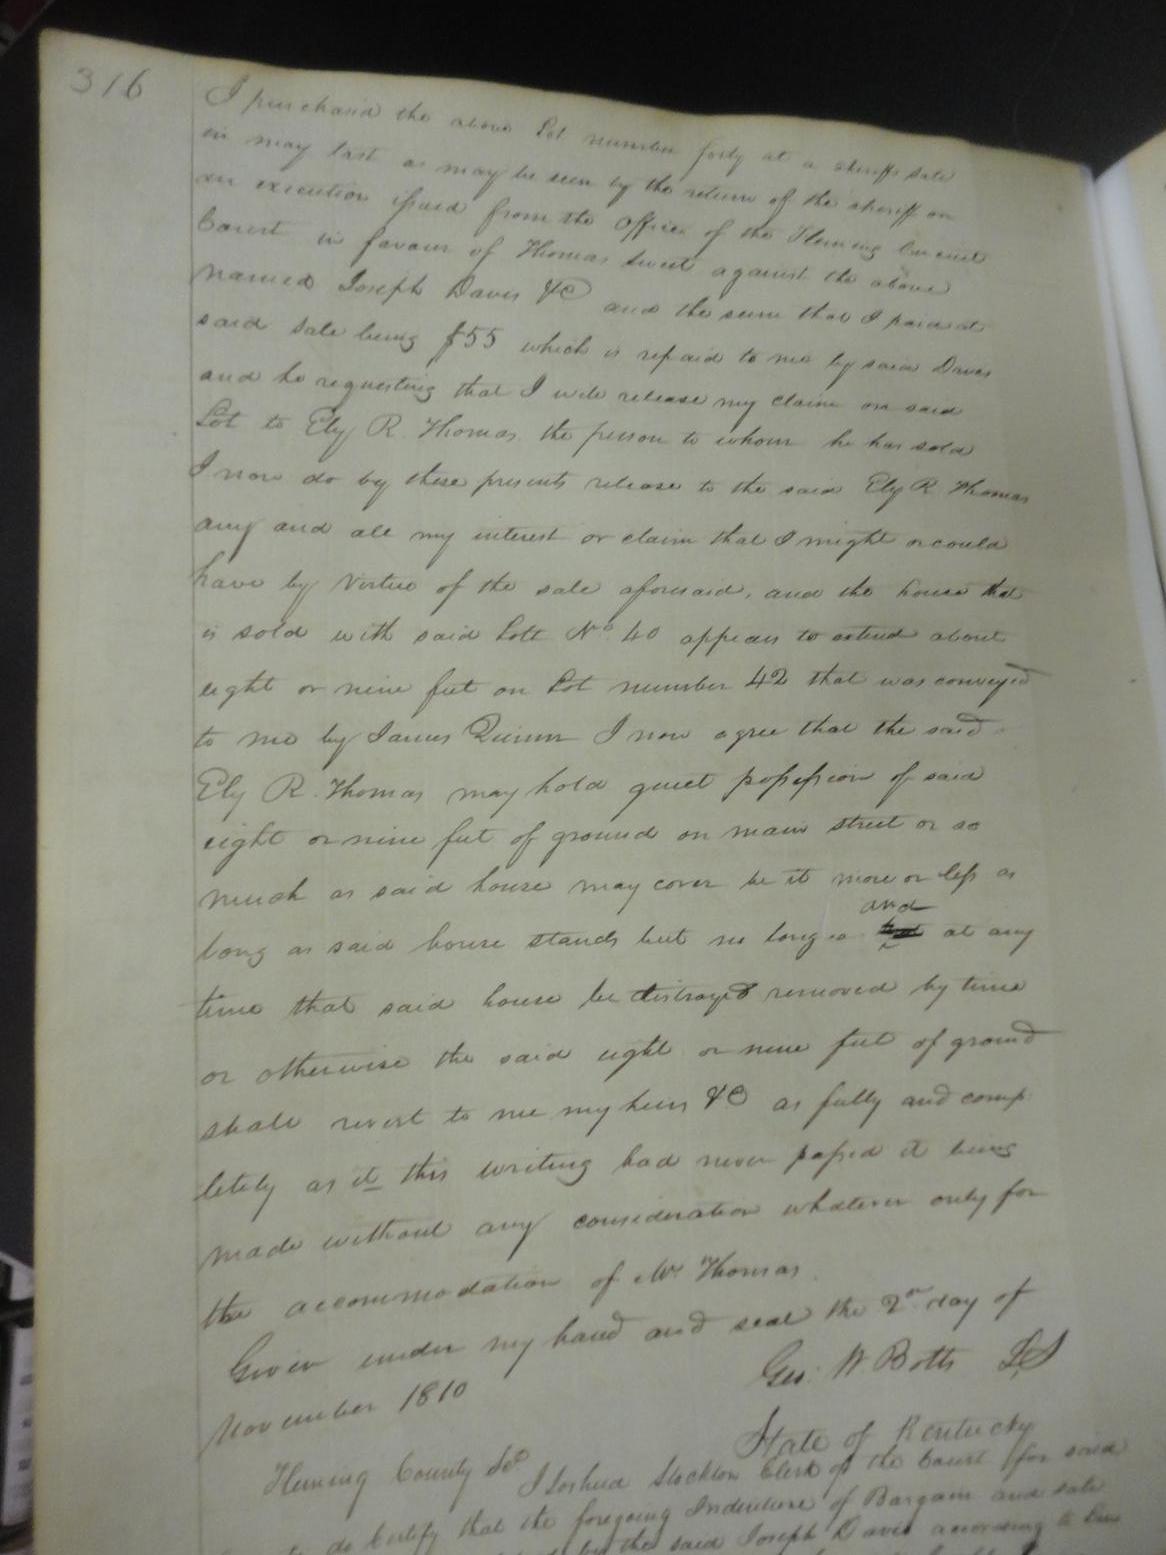 316
I purchased the above Lot number forty at a sheriffs sale
in may last as may be seen by the return of the sheriff on
an execution issued from the Office of the Fleming Circuit
Court in favour of Thomas Sweet against the above
named Joseph Davis &C and the sum that I paid at
said sale being $55 which is repaid to me by said Davis
and he requesting that I will release my claim on said
Lot to Ely R. Thomas the person to whom he has sold
I now do by these presents release to the said Ely R Thomas
any and all my interest or claim that I might or could
have by virtue of the sale aforesaid, and the house that
is sold with said Lott No 40 appears to extend about
eight or nine feet on Lot number 42 that was conveyed
to me by James Quinn I now agree that the said
Ely R. Thomas may hold quiet possession of said
eight or nine feet of ground on main street or so
much as said house may cover be it more or less as
long as said house stands but no longer and at any
time that said house be distroyed removed by time
or otherwise the said eight or nine feet of ground
shall revert to me my heirs &C as fully and comp
letely as if this writing had never passed it being
made without any consideration whatever only for
the accommodation of Mr Thomas.
Given under my hand and seal the 2nd day of
November 1810 Geo. W. Botts LS
State of Kentucky
Fleming County Sct I Joshua Stockton Clerk of the Court for said
do Certify that the foregoing Indenture of Bargain and sale
by the said Joseph Davis according to Law